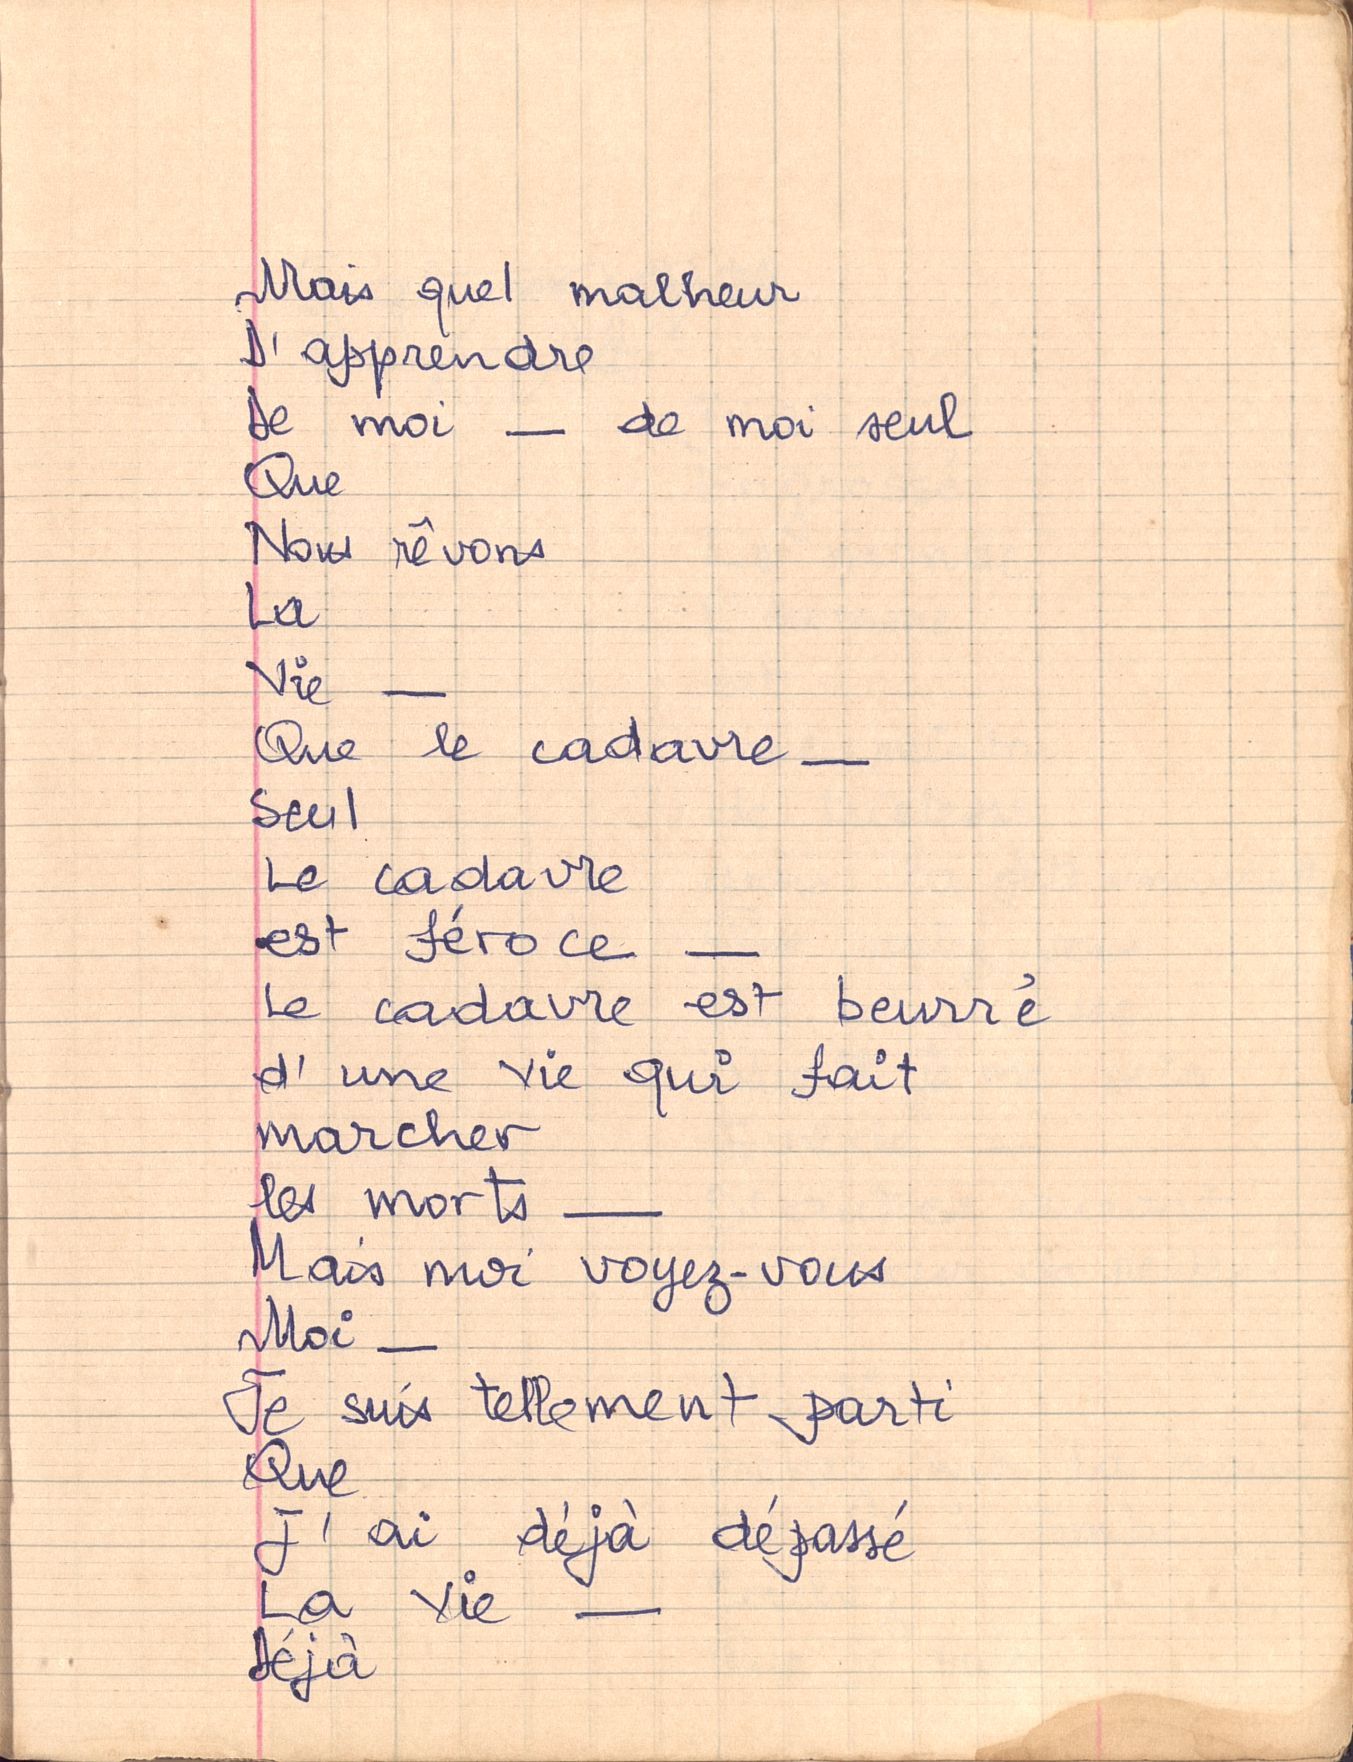 Mais quel malheur
D'apprendre
De moi — de moi seul
Que
Nous rêvons
La
Vie —
Que le cadavre —
Seul
Le cadavre
est féroce —
Le cadavre est beurré
d'une vie qui fait
marcher
les morts —
Mais moi voyez-vous
Moi —
Je suis tellement parti
Que
J'ai déjà dépassé
La Vie —
Déjà